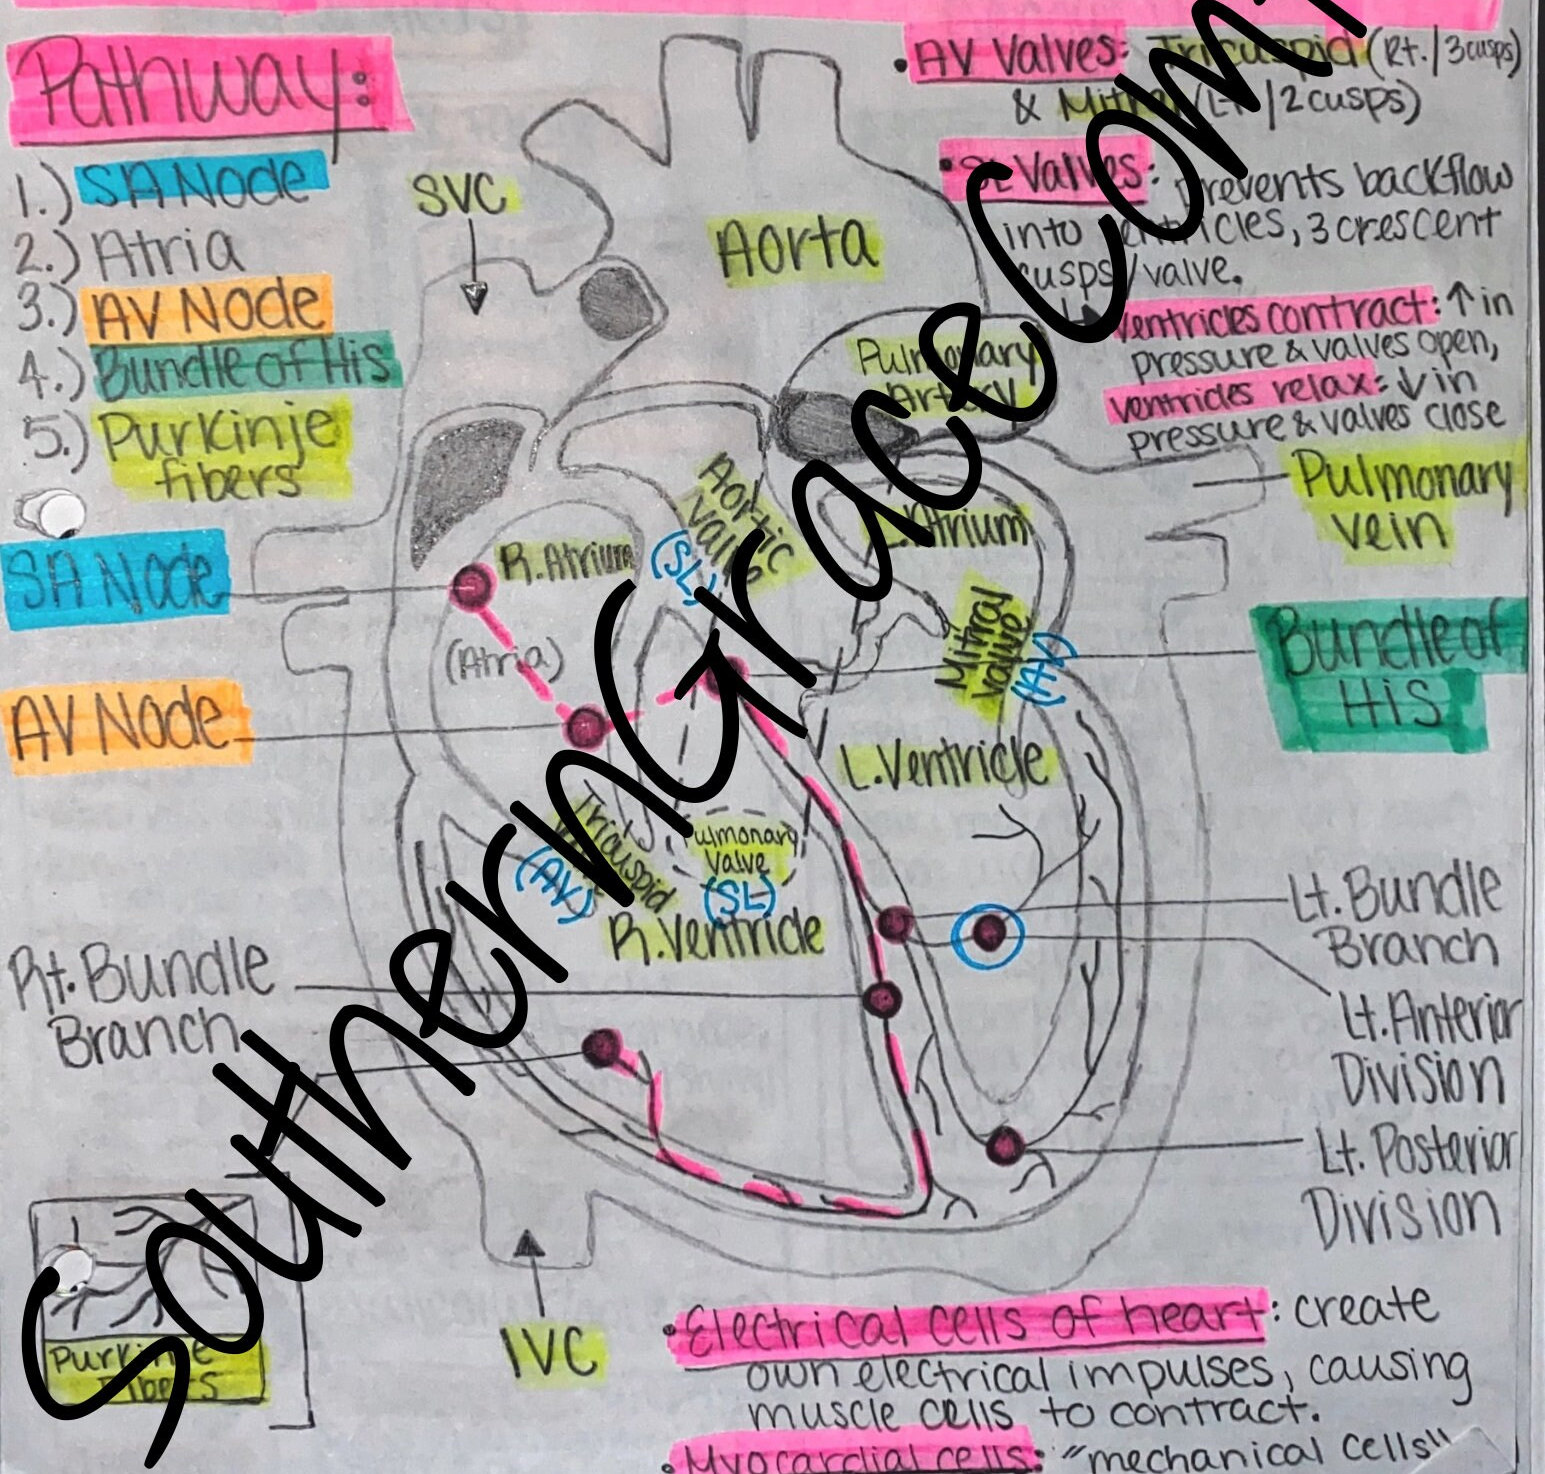 Pathway:
1.) SA Node
2.) Atria
3.) AV Node
4.) Bundle of His
5.) Purkinje
fibers
• AV Valves: Tricuspid (Rt./3cusps)
& Mitral (Lt./2cusps)
• SL Valves: prevents backflow
into ventricles, 3 crescent
cusps/valve.
Ventricles contract: ↑ in
pressure & valves open,
ventricles relax: ↓ in
pressure & valves close
SVC
Aorta
Pulmonary
Artery
Pulmonary
vein
Aortic
Valve
(SL)
R. Atrium
L. Atrium
(Atria)
SA Node
AV Node
Mitral
Valve
(AV)
Bundle of
His
L. Ventricle
Tricuspid
(AV)
Pulmonary
Valve
(SL)
R. Ventricle
Lt. Bundle
Branch
Rt. Bundle
Branch
Lt. Anterior
Division
Lt. Posterior
Division
Purkinje
Fibers
IVC
• Electrical cells of heart: create
own electrical impulses, causing
muscle cells to contract.
• Myocardial cells: "mechanical cells"
SouthernGrace.com